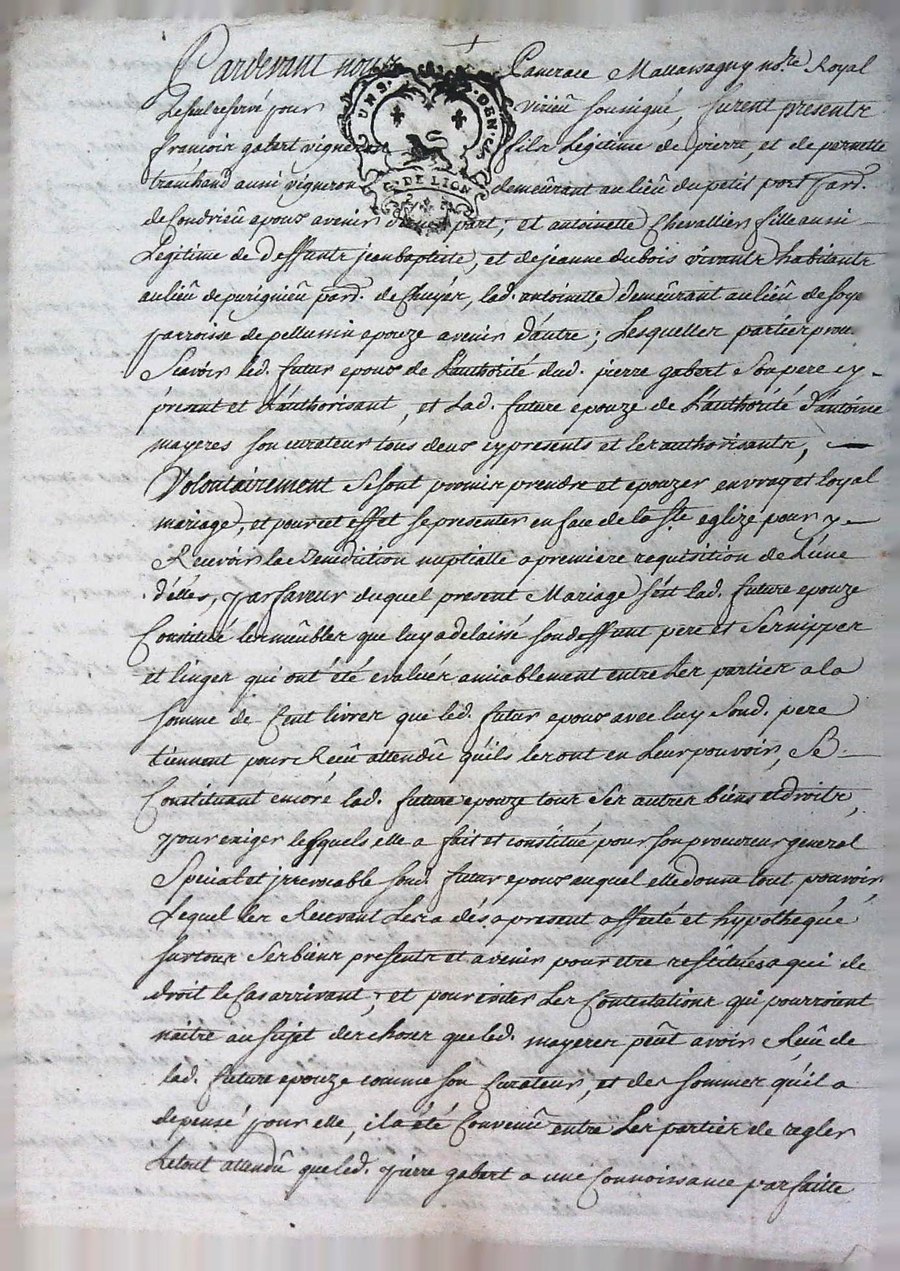 Pardevant nous Pancrace Mallassagny no.re Royal
Le seul reservé pour virieu soussigné, furent presents
francois gabert vigneron fils Légitime de pierre, et de pernette
tranchand aussi vigneron demeûrant au lieû du petit port par.
de Condrieû epous avenir d'une part; et antoinette Chevallier fille aussi
Légitime de deffunts jean baptiste, et de jeanne dubois vivants habitants
au lieû de purignieû par. de Chuyer, lad. antoinette demeûrant au lieû de soye
parroisse de pellussin epouze avenir d'autre; Lesquelles parties
Scavoir led. futur epous de L'authorité dud. pierre gabert Son pere cy-
present et L'authorisant, et Lad. future epouze de L'authorité d'antoine
mayeres son curateur tous deux cy presents et les authorisants,
Volontairement Se sont promis prendre et epouzer en vray et loyal
mariage, et pour cet effet se presenter en face de la Ste eglize pour y
Recevoir la Benediction nuptialle a premiere requisition de L'une
d'elles, par faveur duquel present Mariage s'est lad. future epouze
Constitué les meûbles que luy a delaissé son deffunt pere et Ses nippes
et linges qui ont été evalués amiablement entre Les parties a la
somme de Cent livres que led. futur epous avec luy Sond. pere
tiennent pour Reçû attendû qu'ils les ont en Leur pouvoir, Se
Constituant encoré lad. future epouze tous Ses autres biens et droits,
pour exiger lesquels elle a fait et constitué pour son procureur general
Special et jrrevocable sond. futur epous auquel elle donne tout pouvoir
Lequel les Recevant Lesra dés apresent affecté et hypotheqûé
sur tous Ses biens presents et avenir pour etre restitués a qui de
droit le Cas arrivant; et pour eviter Les Contestations qui pourroient
naitre au sujet des choses que led. mayeres peût avoir Reçû de
lad. future epouze comme son Curateur, et des sommes qu'il a
depensé pour elle, il a été Convenû entre Les parties de regler
Le tout attendû que led. pierre gabert a une Connoissance parfaitte
G. DE LION